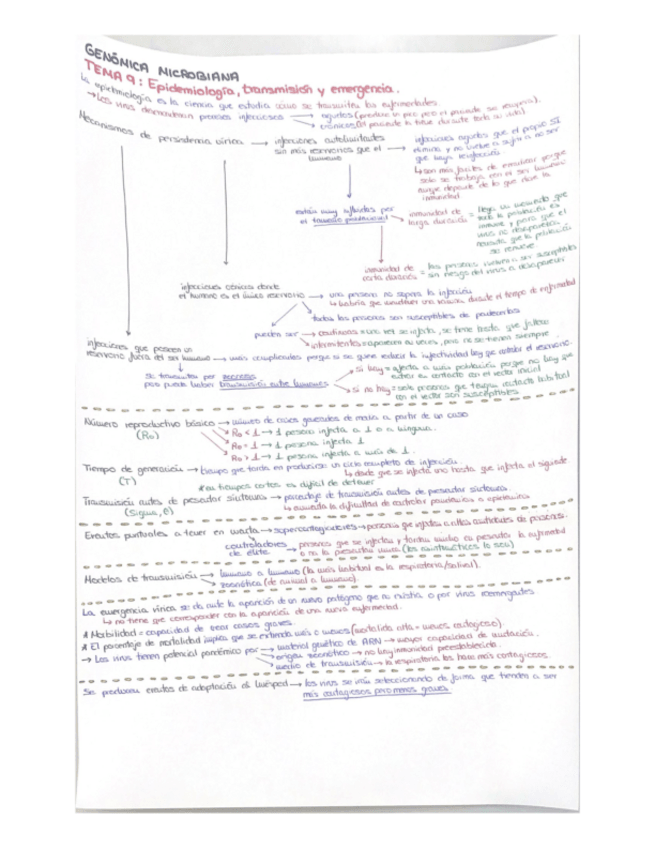 GENÓMICA MICROBIANA
TEMA 9: Epidemiología, transmisión y emergencia.
La epidemiología es la ciencia que estudia cómo se transmiten las enfermedades.
→ Los virus desencadenan procesos infecciosos → agudos (produce un pico pero el paciente se recupera).
→ crónicos (el paciente lo tiene durante toda su vida)
Mecanismos de persistencia vírica → infecciones autolimitadas sin más reservorios que el humano → infecciones agudas que el propio SI elimina y no vuelve a sufrir a no ser que haya reinfección
↳ son más fáciles de erradicar porque solo se trabaja con el ser humano aunque depende de lo que dure la inmunidad
están muy influidas por el tamaño poblacional
inmunidad de larga duración = llega un momento que toda la población es inmune y para que el virus no desaparezca necesita que la población se renueve
inmunidad de corta duración = las personas vuelven a ser susceptibles sin riesgo del virus a desaparecer
infecciones crónicas donde el humano es el único reservorio → una persona no supera la infección
↳ habría que erradicar una vacuna durante el tiempo de enfermedad
todas las personas son susceptibles de padecerlas
pueden ser → continuas = una vez se infecta, se tiene hasta que fallece
→ intermitentes = aparecen a veces, pero no se tienen siempre
infecciones que poseen un reservorio fuera del ser humano → más complicadas porque si se quiere reducir la infectividad hay que reducir el reservorio.
se transmiten por vectores pero puede haber transmisión entre humanos
si hay = afecta a más población porque no hay que estar en contacto con el vector inicial
si no hay = solo personas que tengan contacto habitual con el vector son susceptibles
Número reproductivo básico → número de casos generados de media a partir de un caso
(R₀)
R₀ < 1 → 1 persona infecta a 1 o a ninguna.
R₀ = 1 → 1 persona infecta 1
R₀ > 1 → 1 persona infecta a más de 1.
Tiempo de generación → tiempo que tarda en producirse un ciclo completo de infección
(T)
↳ desde que se infecta uno hasta que infecta al siguiente
* en tiempos cortos es difícil de detener
Transmisión antes de presentar síntomas → porcentaje de transmisión antes de presentar síntomas.
(Sigma, θ)
↳ aumenta la dificultad de controlar pandemias o epidemias
Eventos puntuales a tener en cuenta → supercontagiadores → personas que infectan a altas cantidades de personas.
controladores de élite → personas que se infectan y tardan mucho en presentar la enfermedad o no la presentan nunca (los asintomáticos lo son)
Modelos de transmisión → humano a humano (la más habitual es la respiratoria/salival).
→ zoonótica (de animal a humano).
La emergencia vírica se da ante la aparición de un nuevo patógeno que no existía o por virus reemergentes
↳ no tiene que corresponder con la aparición de una nueva enfermedad.
* Morbilidad = capacidad de crear casos graves.
* El porcentaje de mortalidad implica que se extienda más o menos (mortalidad alta = menos contagioso).
→ Los virus tienen potencial pandémico por → material genético de ARN → mayor capacidad de mutación.
→ origen zoonótico → no hay inmunidad preestablecida.
→ medio de transmisión → la respiratoria los hace más contagiosos.
Se producen eventos de adaptación al huésped → los virus se irán seleccionando de forma que tienden a ser
más contagiosos pero menos graves